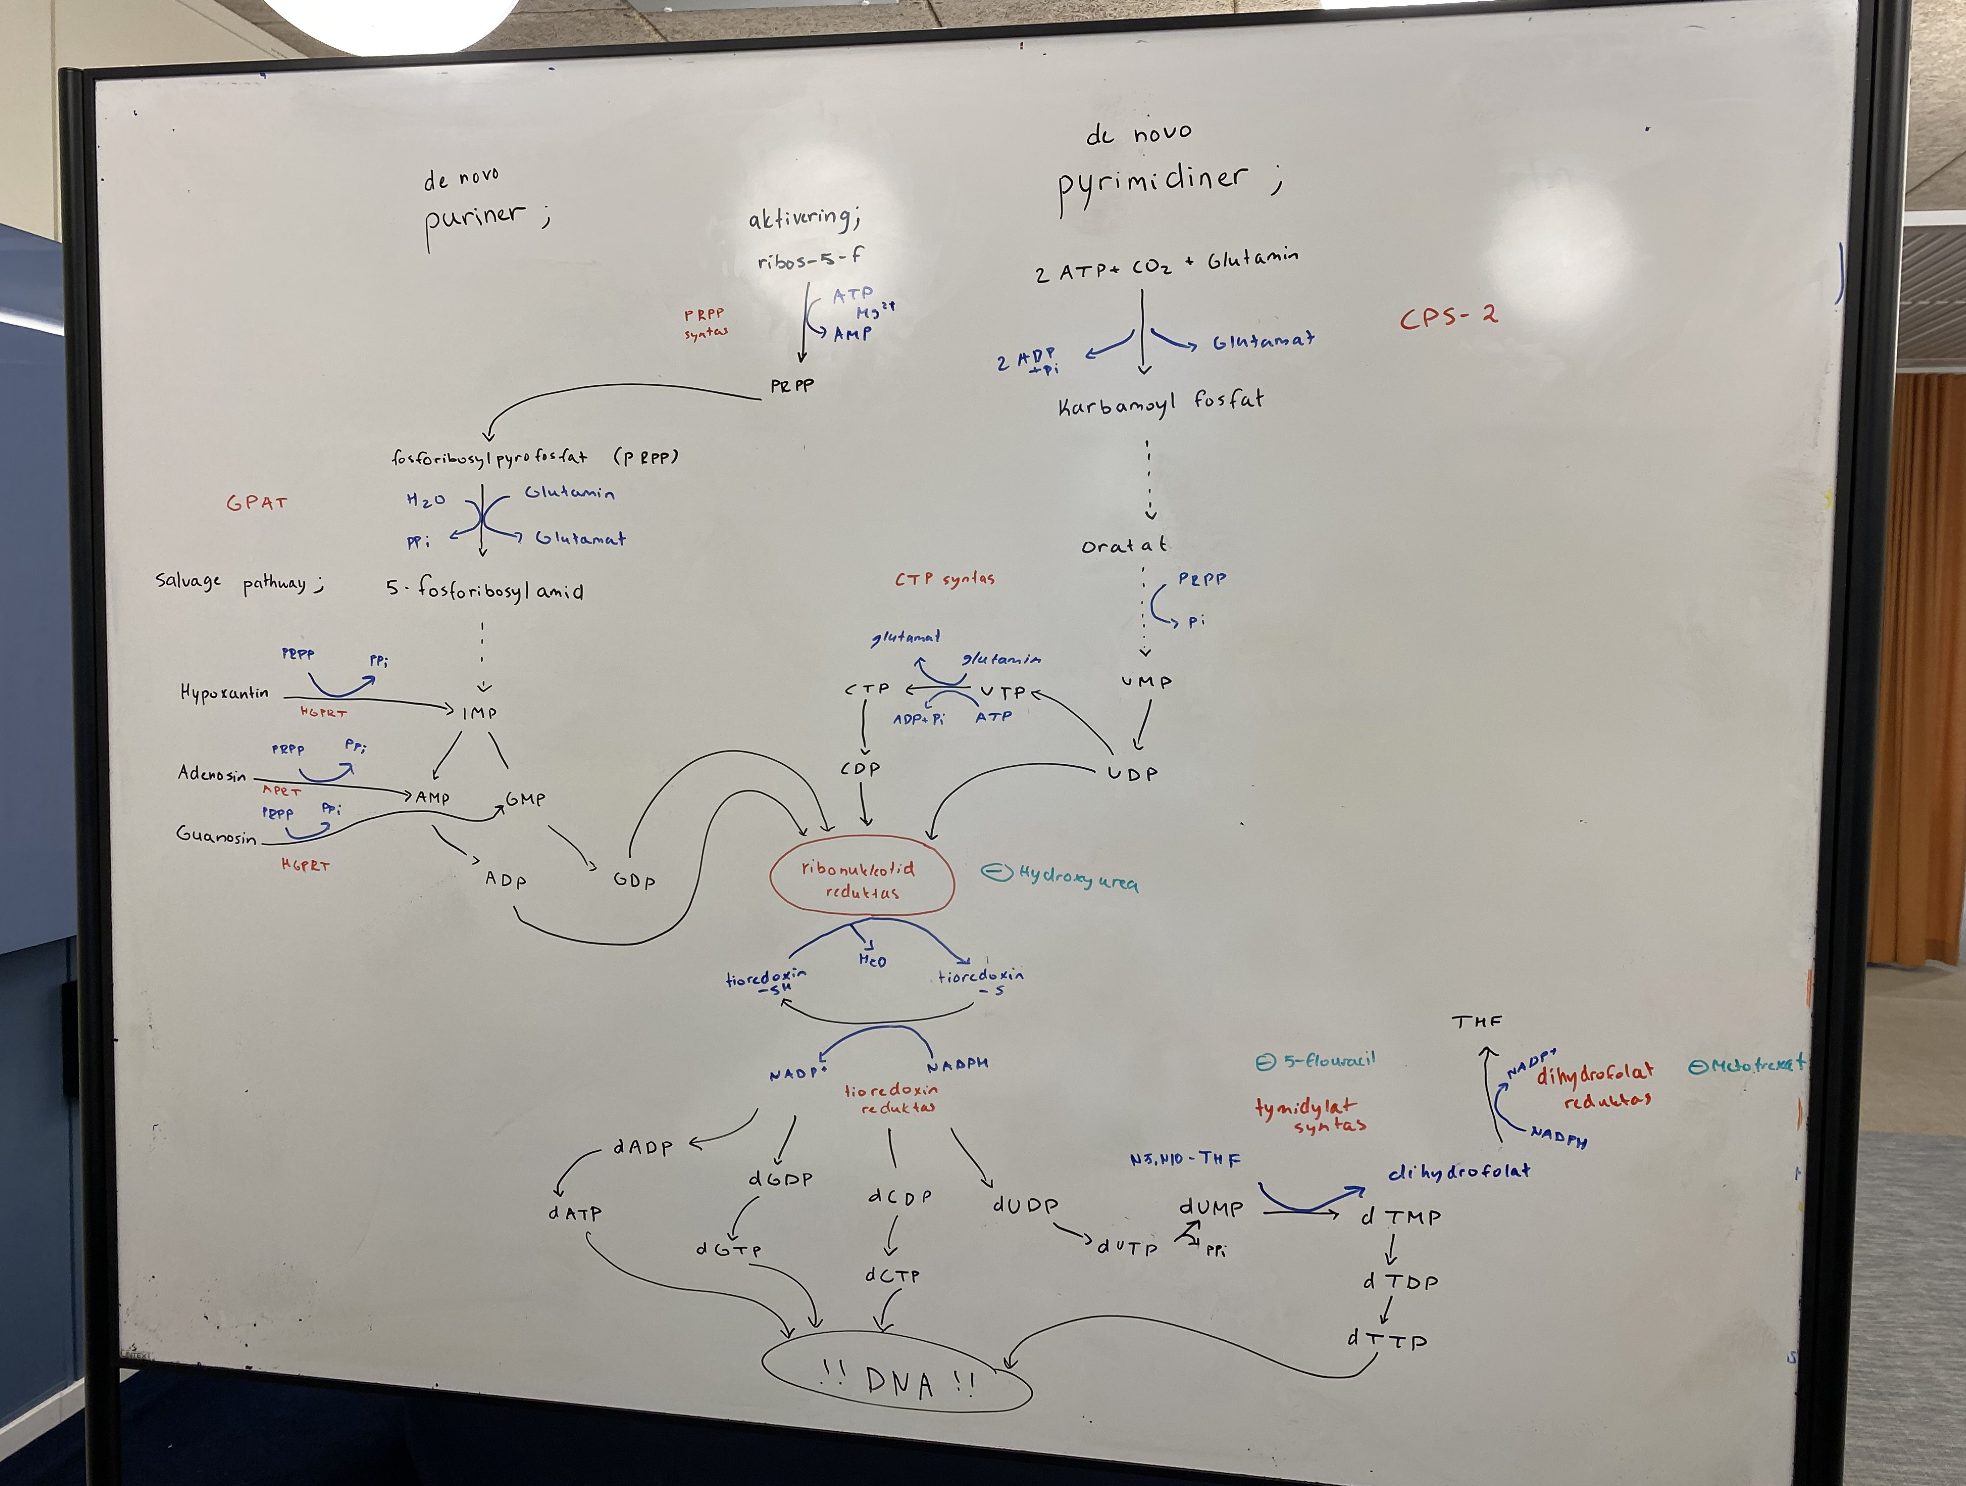 de novo
puriner ;
aktivering;
ribos-5-f
PRPP
syntas
ATP
Mg²⁺
AMP
PRPP
de novo
pyrimidiner ;
2 ATP + CO₂ + Glutamin
CPS-2
2 ADP
+Pi
Glutamat
Karbamoyl fosfat
Oratat
PRPP
Pi
UMP
UDP
fosforibosylpyrofosfat (PRPP)
GPAT
H₂O
Glutamin
PPi
Glutamat
Salvage pathway ;
5-fosforibosylamid
PRPP
PPi
Hypoxantin
HGPRT
IMP
PRPP
PPi
Adenosin
APRT
AMP
GMP
PRPP
PPi
Guanosin
HGPRT
ADP
GDP
CTP syntas
glutamat
glutamin
CTP
UTP
ADP+Pi
ATP
CDP
ribonukleotid
reduktas
⊖ Hydroxyurea
H₂O
tioredoxin
-SH
tioredoxin
-S
NADP⁺
NADPH
tioredoxin
reduktas
dADP
dGDP
dCDP
dUDP
dATP
dGTP
dCTP
dUTP
PPi
dUMP
N5,N10-THF
⊖ 5-flouracil
tymidylat
syntas
THF
NADP⁺
dihydrofolat
reduktas
⊖ Metotrexat
NADPH
dihydrofolat
dTMP
dTDP
dTTP
!! DNA !!